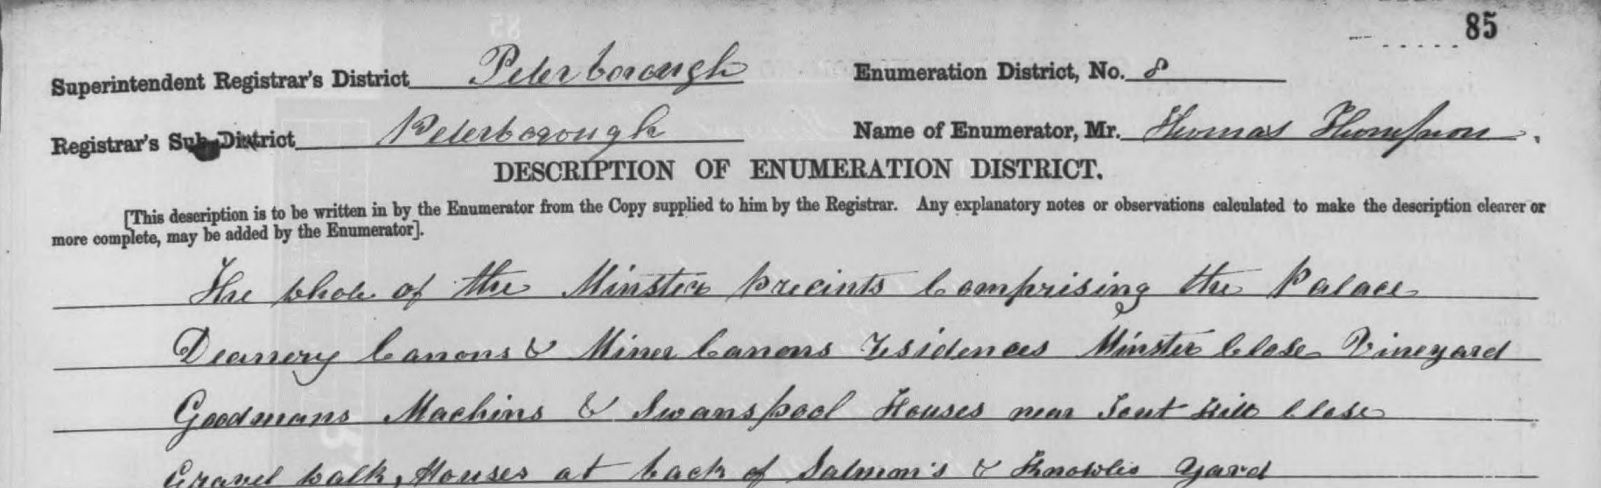 85
Superintendent Registrar's District Peterborough Enumeration District, No. 8
Registrar's Sub-District Peterborough Name of Enumerator, Mr. Thomas Thompson.
DESCRIPTION OF ENUMERATION DISTRICT.
[This description is to be written in by the Enumerator from the Copy supplied to him by the Registrar. Any explanatory notes or observations calculated to make the description clearer or
more complete, may be added by the Enumerator].
The whole of the Minster Precints Comprising the Palace
Deanery Canons & Miner Canons residences Minster Close Vineyard
Goodmans Machins & Swanspool Houses near Tout Hill Close
Gravel walk, Houses at back of Salmon's & Yard